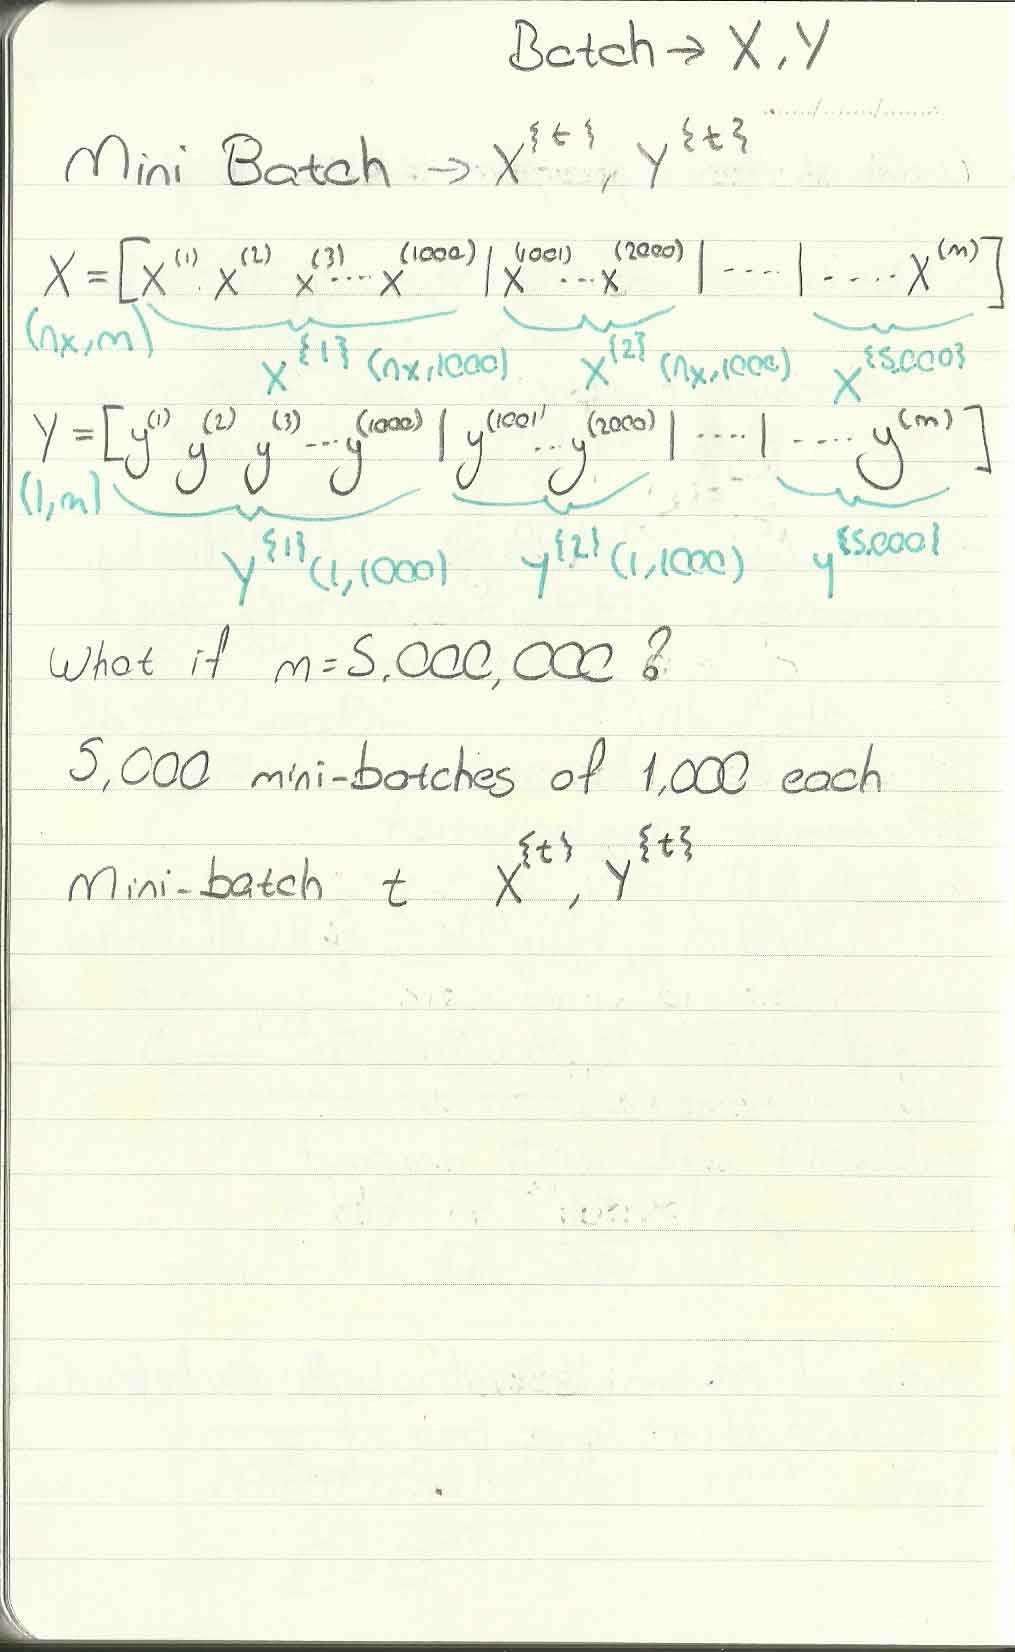 Batch → X, Y
Mini Batch → X^{t}, Y^{t}
X = [x^(1) x^(2) x^(3) ... x^(1000) | x^(1001) ... x^(2000) | .... | .... x^(m)]
(nx, m)
X^{1} (nx, 1000) X^{2} (nx, 1000) X^{5,000}
Y = [y^(1) y^(2) y^(3) ... y^(1000) | y^(1001) ... y^(2000) | .... | .... y^(m)]
(1, m)
Y^{1} (1, 1000) Y^{2} (1, 1000) Y^{5,000}
What if m = 5,000,000?
5,000 mini-batches of 1,000 each
Mini-batch t X^{t}, Y^{t}